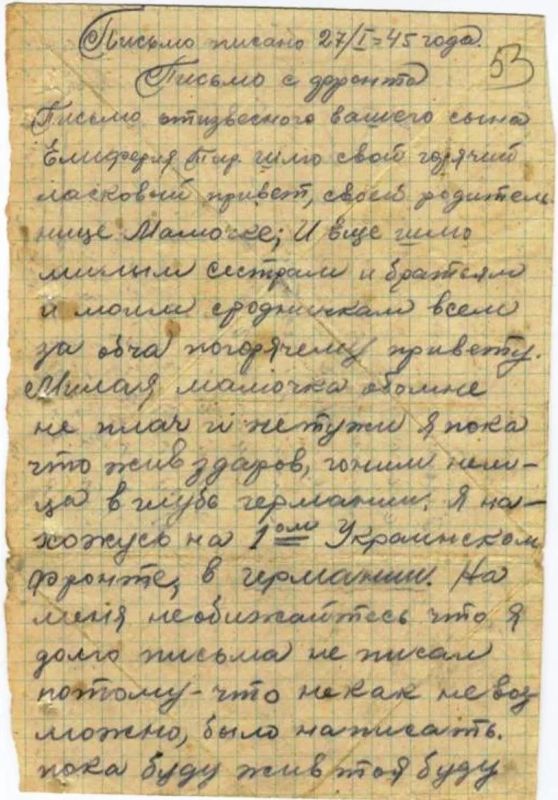 Письмо писано 27/I=45 года.
53
Письмо с фронта
Письмо отизвесного вашего сына
Елиферия Тыр. шлю свой горячий
ласковый привет, своей родитель-
нице Мамочке; И еще шлю
милым сестрам и братьям
и моим сродничкам всем
за обча погорячему привету.
Милая мамочка обомне
не плач и нетужи я пока
что жив здаров, гоним нем-
ца в глубь германии. Я на-
хожусь на 1ом Украинском
фронте, в германии. На
меня необижайтесь что я
долго письма не писал
потому-что некак невоз
можно, было написать.
пока буду жив тоя буду